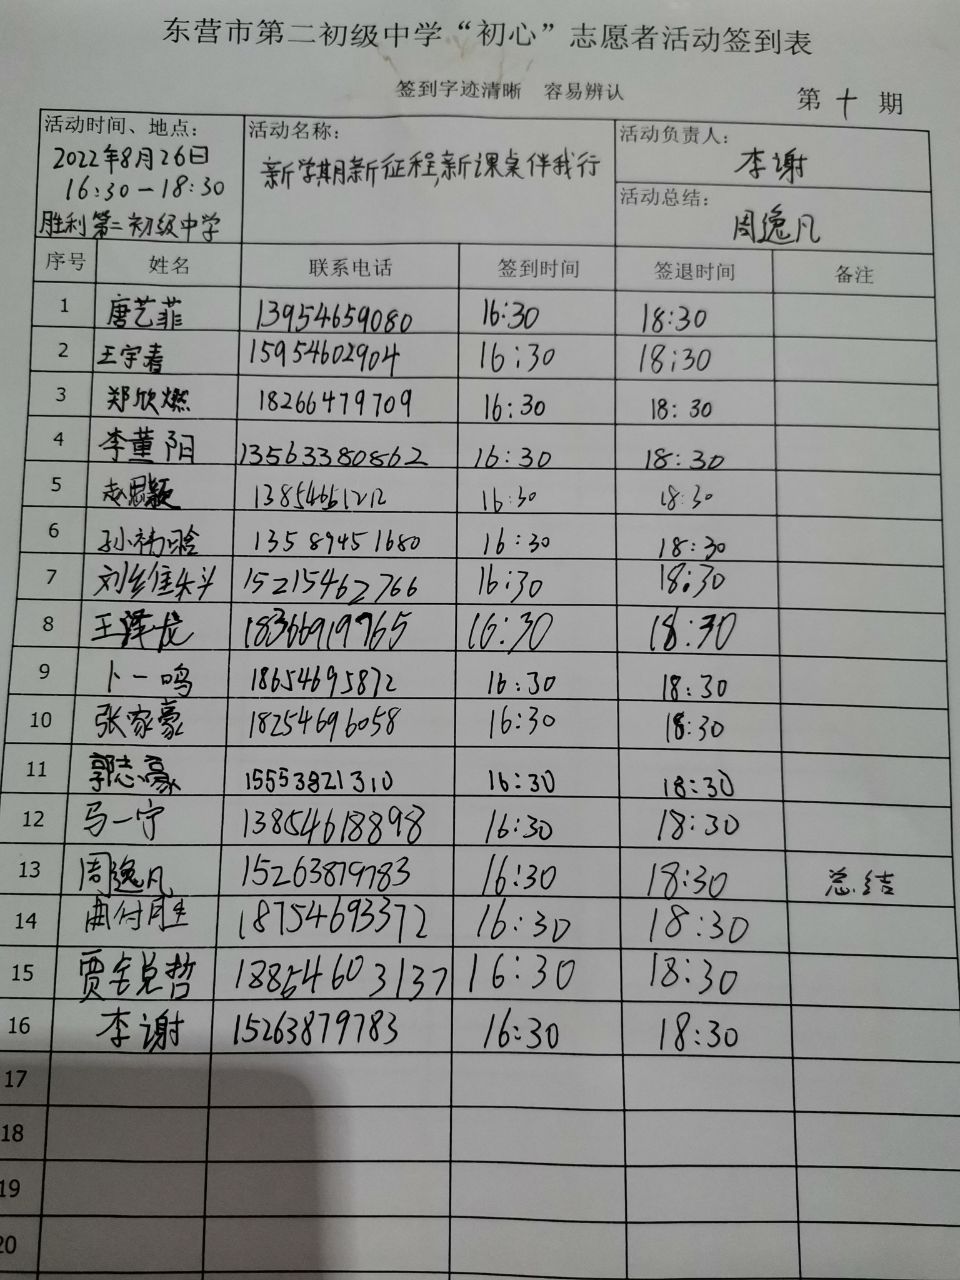 东营市第二初级中学“初心”志愿者活动签到表
签到字迹清晰 容易辨认
第 十 期
活动时间、地点:
2022年8月26日
16:30—18:30
胜利第二初级中学
活动名称:
新学期新征程,新课桌伴我行
活动负责人:
李谢
活动总结:
周逸凡
序号 姓名 联系电话 签到时间 签退时间 备注
1 唐艺菲 13954659080 16:30 18:30
2 王宇春 15954602904 16:30 18:30
3 郑欣燃 18266479709 16:30 18:30
4 李董阳 13563380862 16:30 18:30
5 赵思颖 13854661212 16:30 18:30
6 孙祎晗 13589451680 16:30 18:30
7 15215462766 16:30 18:30
8 王泽龙 18366919765 16:30 18:30
9 卜一鸣 18654695872 16:30 18:30
10 张家豪 18254696058 16:30 18:30
11 郭志豪 15553821310 16:30 18:30
12 马一宁 13854618898 16:30 18:30
13 周逸凡 15263879783 16:30 18:30 总结
14 曲付胜 18754693372 16:30 18:30
15 18854603137 16:30 18:30
16 李谢 15263879783 16:30 18:30
17
18
19
20